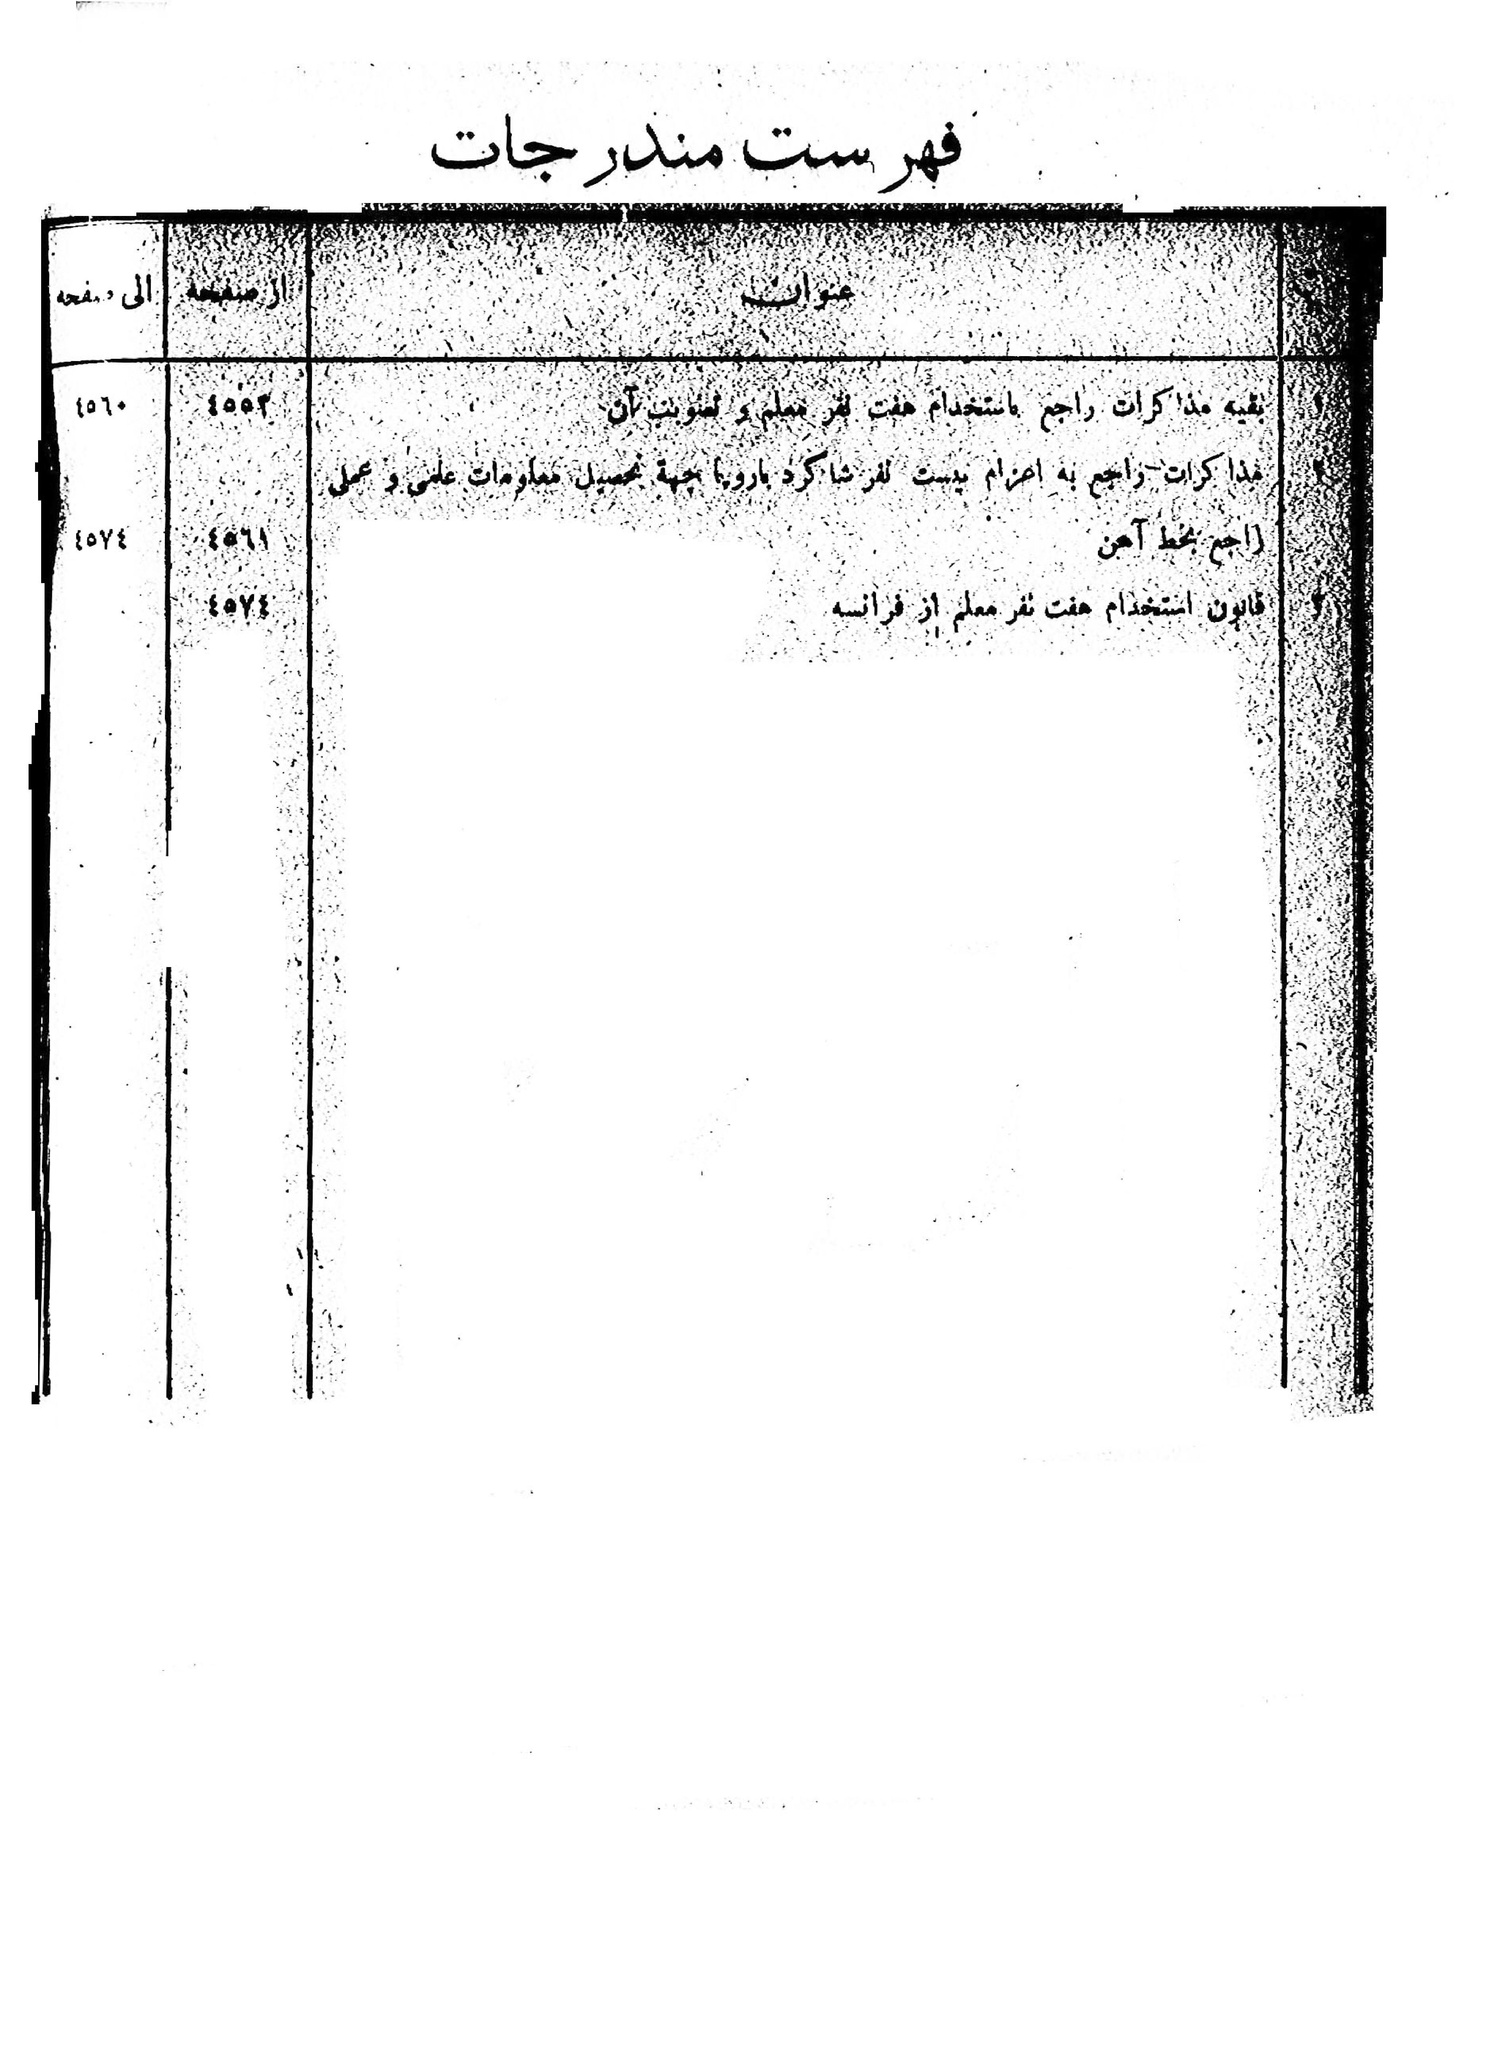 فهرست مندرجات
عنوان از صفحه الی صفحه
۱ بقیه مذاکرات راجع باستخدام هفت نفر معلم و تصویب آن ٤٥٥٣ ٤٥٦٠
۲ مذاکرات راجع به اعزام بیست نفر شاگرد باروپا جهة تحصیل معلومات علمی و عملی
راجع بخط آهن ٤٥٦١ ٤٥٧٤
۳ قانون استخدام هفت نفر معلم از فرانسه ٤٥٧٤